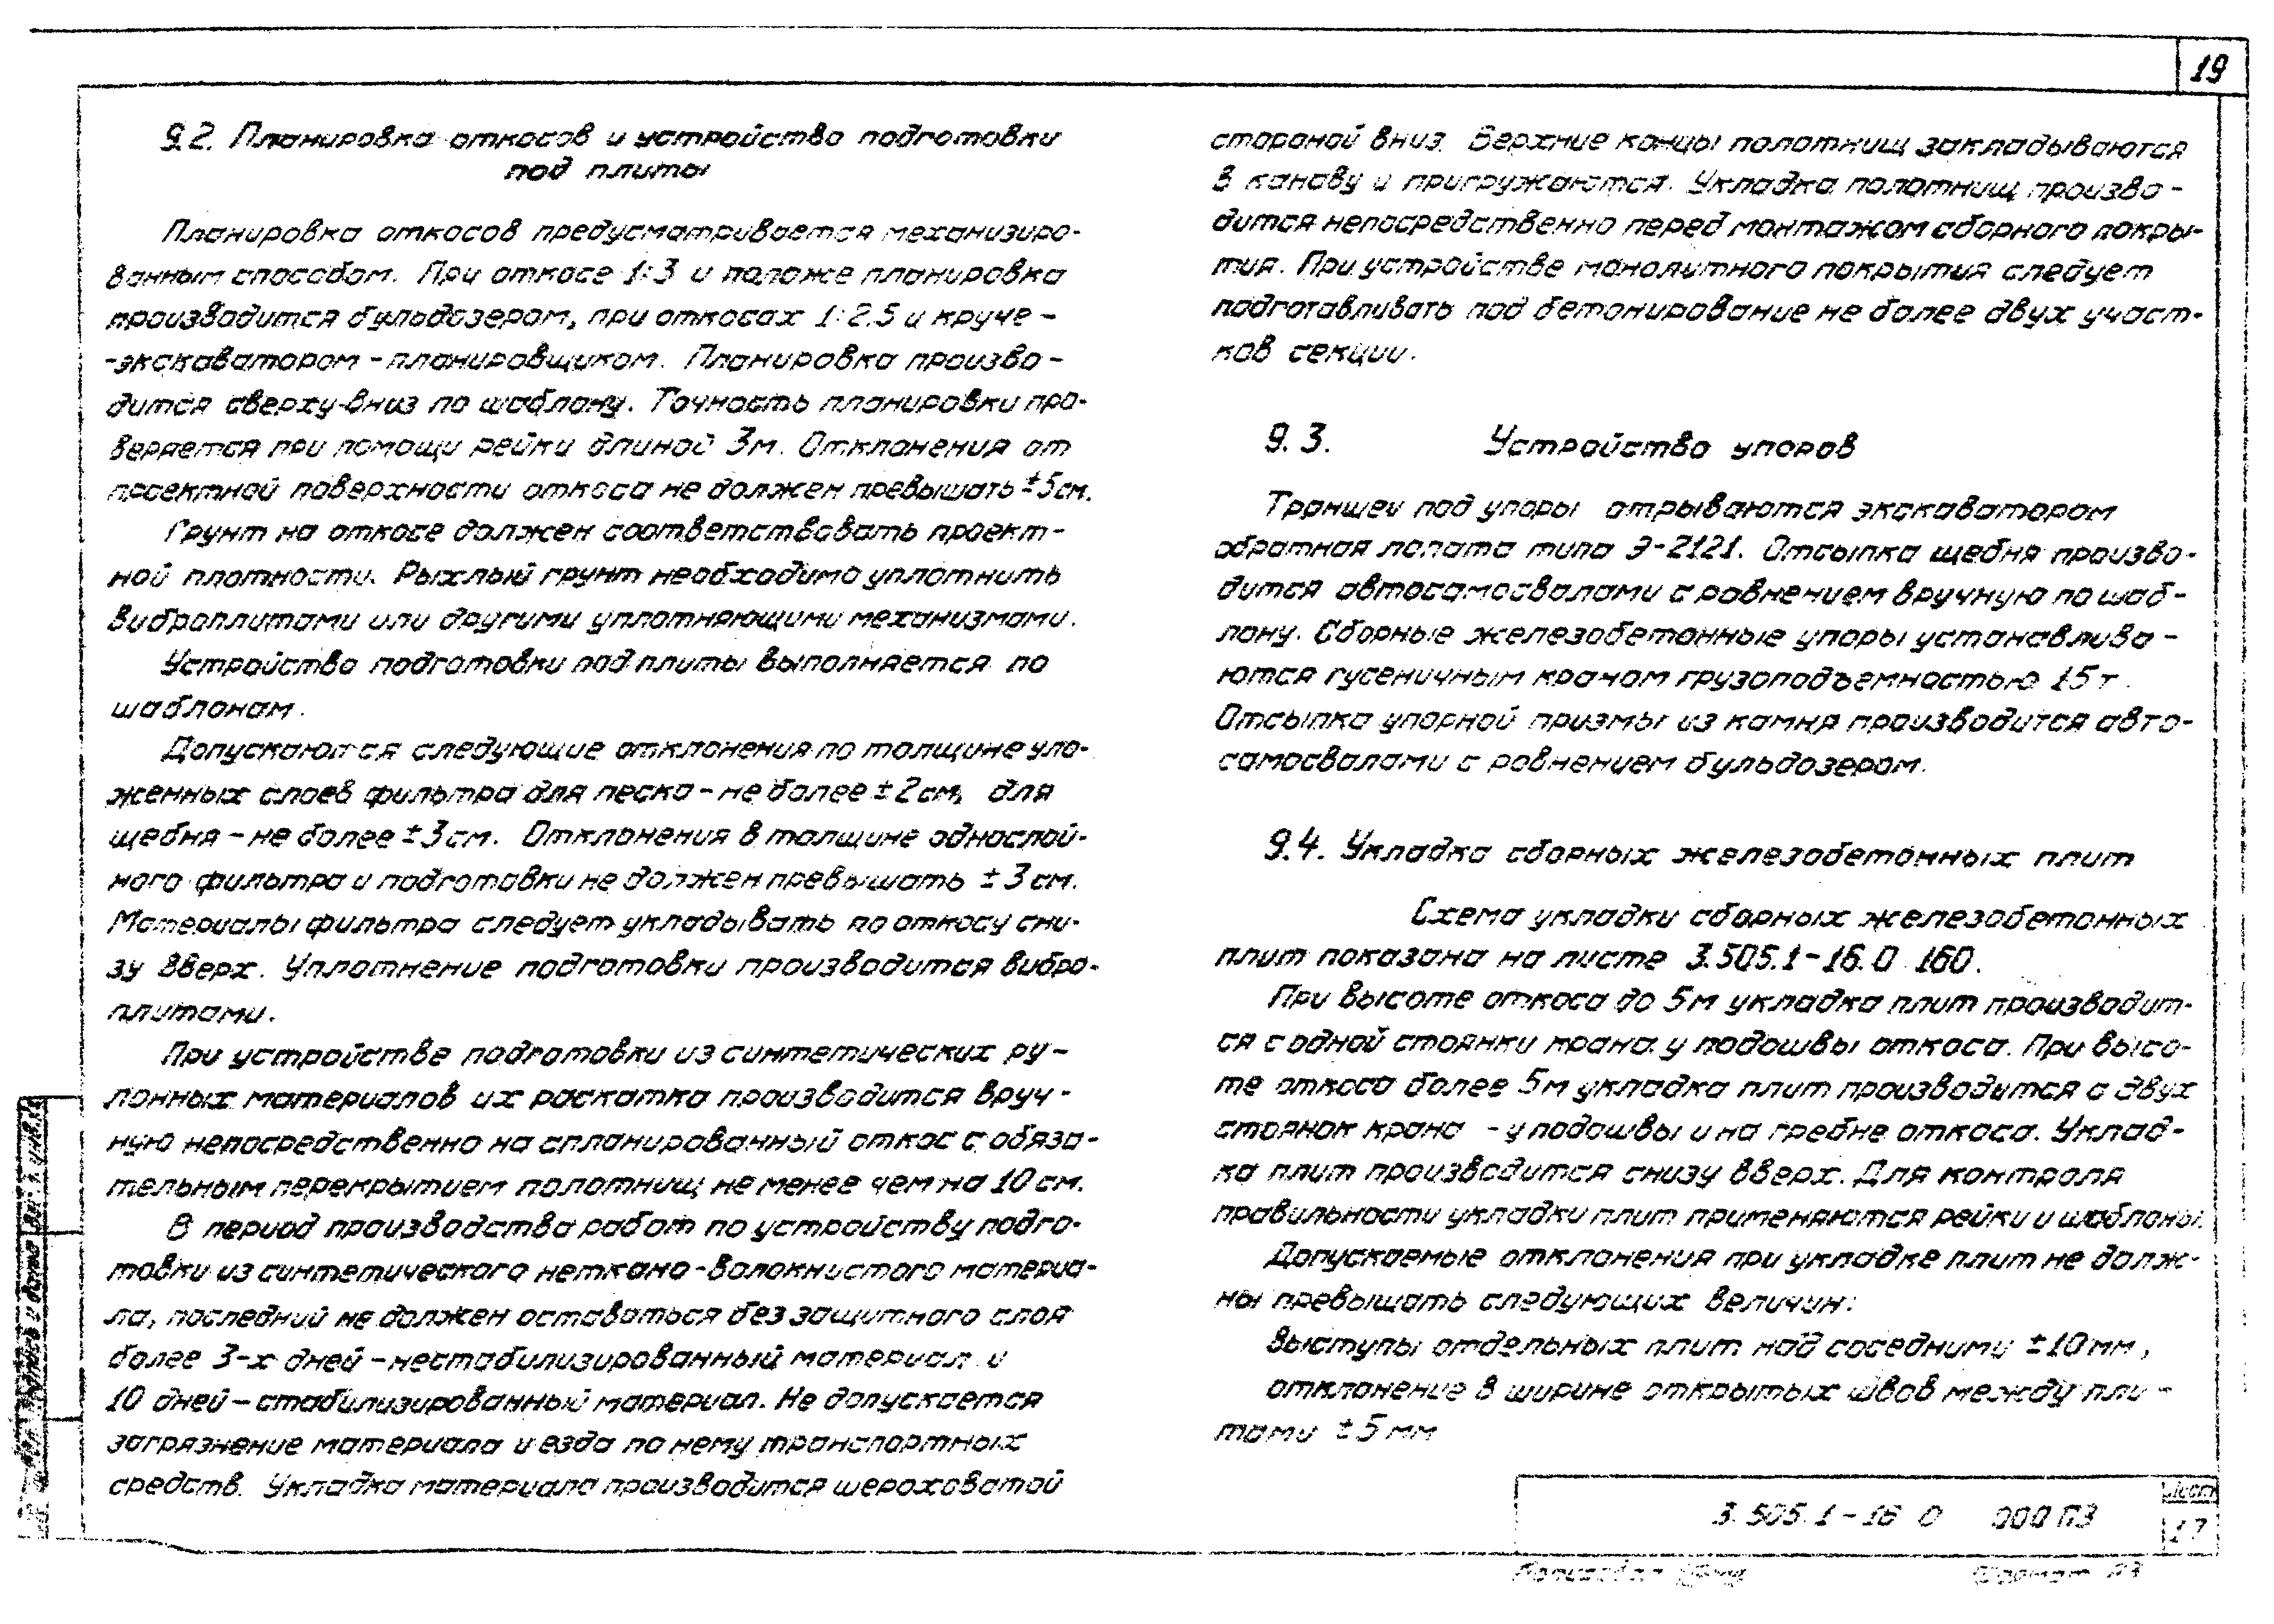 19
9.2. Планировка откосов и устройство подготовки
под плиты
Планировка откосов предусматривается механизиро-
ванным способом. При откосе 1:3 и положе планировка
производится бульдозером, при откосах 1:2.5 и круче -
-экскаватором - планировщиком. Планировка произво-
дится сверху-вниз по шаблону. Точность планировки про-
веряется при помощи рейки длиной 3м. Отклонения от
проектной поверхности откоса не должен превышать ±5см.
Грунт на откосе должен соответствовать проект-
ной плотности. Рыхлый грунт необходимо уплотнить
виброплитами или другими уплотняющими механизмами.
Устройство подготовки под плиты выполняется по
шаблонам.
Допускаются следующие отклонения по толщине уло-
женных слоев фильтра для песка - не более ±2см, для
щебня - не более ±3см. Отклонения в толщине однослой-
ного фильтра и подготовки не должен превышать ±3см.
Материалы фильтра следует укладывать по откосу сни-
зу вверх. Уплотнение подготовки производится вибро-
плитами.
При устройстве подготовки из синтетических ру-
лонных материалов их раскатка производится вруч-
ную непосредственно на спланированный откос с обяза-
тельным перекрытием полотнищ не менее чем на 10 см.
В период производства работ по устройству подго-
товки из синтетического неткано-волокнистого материа-
ла, последний не должен оставаться без защитного слоя
более 3-х дней - нестабилизированный материал и
10 дней - стабилизированный материал. Не допускается
загрязнение материала и езда по нему транспортных
средств. Укладка материала производится шероховатой
стороной вниз. Верхние концы полотнищ закладываются
в канаву и пригружаются. Укладка полотнищ произво-
дится непосредственно перед монтажом сборного покры-
тия. При устройстве монолитного покрытия следует
подготавливать под бетонирование не более двух участ-
ков секции.
9.3. Устройство упоров
Траншеи под упоры отрываются экскаватором
обратная лопата типа Э-2121. Отсыпка щебня произво-
дится автосамосвалами с ровнением вручную по шаб-
лону. Сборные железобетонные упоры устанавлива-
ются гусеничным краном грузоподъемностью 15 т.
Отсыпка упорной призмы из камня производится авто-
самосвалами с ровнением бульдозером.
9.4. Укладка сборных железобетонных плит
Схема укладки сборных железобетонных
плит показана на листе 3.505.1-16.0 160.
При высоте откоса до 5м укладка плит производит-
ся с одной стоянки крана у подошвы откоса. При высо-
те откоса более 5м укладка плит производится с двух
стоянок крана - у подошвы и на гребне откоса. Уклад-
ка плит производится снизу вверх. Для контроля
правильности укладки плит применяются рейки и шаблоны.
Допускаемые отклонения при укладке плит не долж-
ны превышать следующих величин:
выступы отдельных плит над соседними ±10мм,
отклонение в ширине открытых швов между пли-
тами ±5 мм
3.505.1-16 0 000 ПЗ
Лист
17
Копировал
Формат А3
Подпись и дата